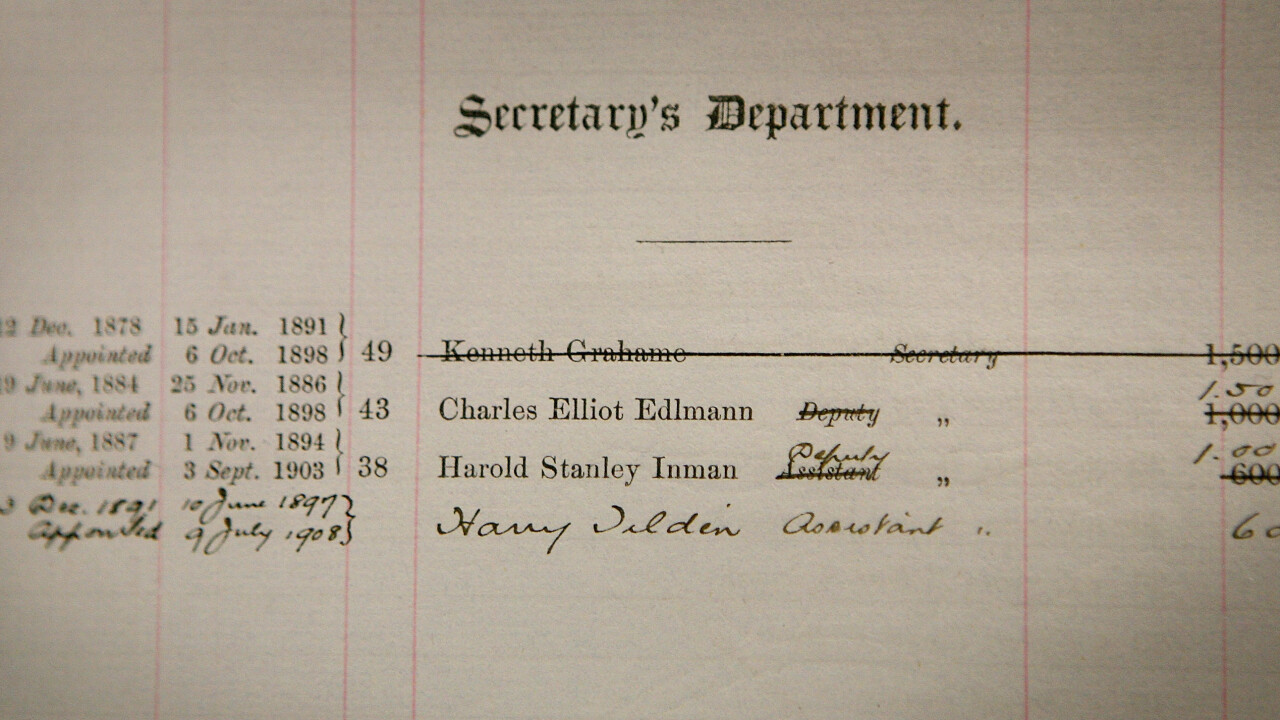 Secretary's Department.
2 Dec. 1878 15 Jan. 1891
Appointed 6 Oct. 1898 49 Kenneth Grahame Secretary 1,500
1.50
9 June, 1884 25 Nov. 1886
Appointed 6 Oct. 1898 43 Charles Elliot Edlmann Deputy „ 1,000
9 June, 1887 1 Nov. 1894
Deputy 1.00
Appointed 3 Sept. 1903 38 Harold Stanley Inman Assistant „ 600
3 Dec. 1891 10 June 1897
Appointed 9 July 1908 Harry Tilden Assistant „ 60